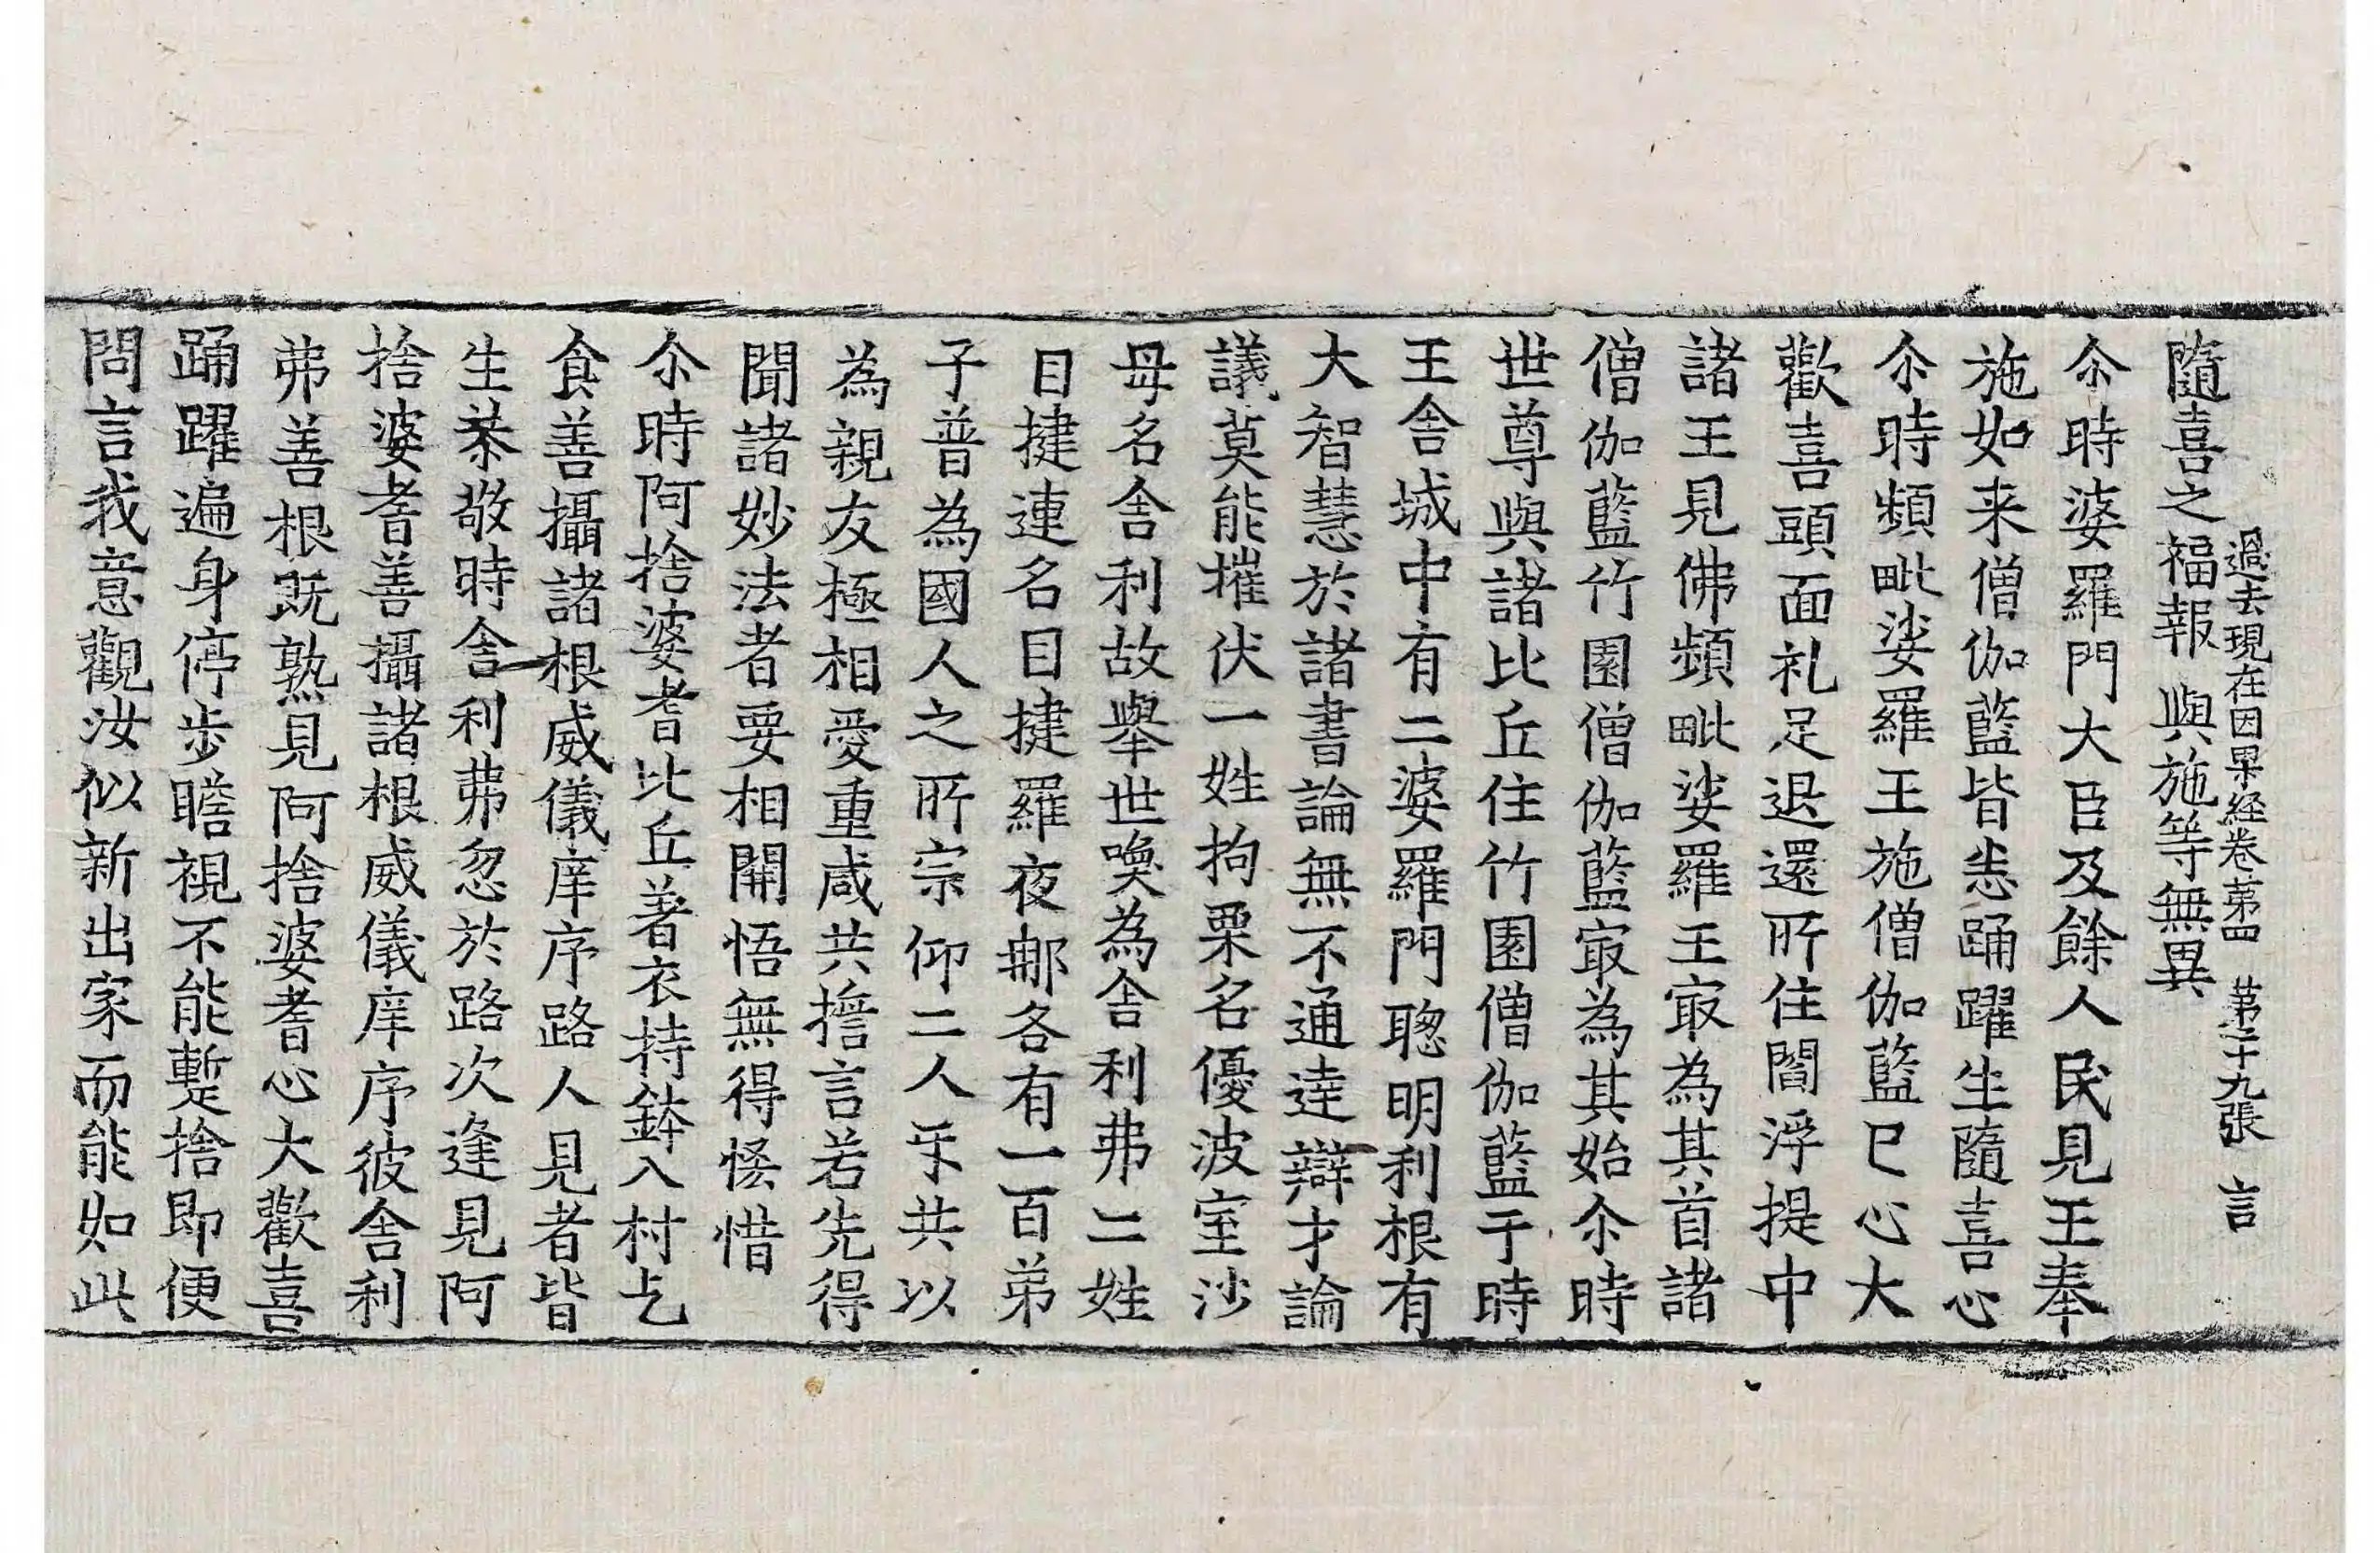 過去現在因果経卷苐四　苐二十九張　言
隨喜之福報與施等無異
尒時婆羅門大臣及餘人民見王奉
施如来僧伽藍皆悉踊躍生隨喜心
尒時頻毗娑羅王施僧伽藍已心大
歡喜頭面礼足退還所住閻浮提中
諸王見佛頻毗娑羅王㝡為其首諸
僧伽藍竹園僧伽藍㝡為其始尒時
世尊與諸比丘住竹園僧伽藍于時
王舍城中有二婆羅門聰明利根有
大智慧於諸書論無不通達辯才論
議莫能摧伏一姓拘栗名優波室沙
母名舍利故舉世喚為舍利弗二姓
目揵連名目揵羅夜那各有一百弟
子普為國人之所宗仰二人㸦共以
為親友極相愛重咸共擔言若先得
聞諸妙法者要相開悟無得悋惜
尒時阿捨婆耆比丘著衣持鉢入村乞
食善攝諸根威儀庠序路人見者皆
生恭敬時舍利弗忽於路次逢見阿
捨婆耆善攝諸根威儀庠序彼舍利
弗善根既熟見阿捨婆耆心大歡喜
踊躍遍身停步瞻視不能暫捨即便
問言我意觀汝似新出家而能如此